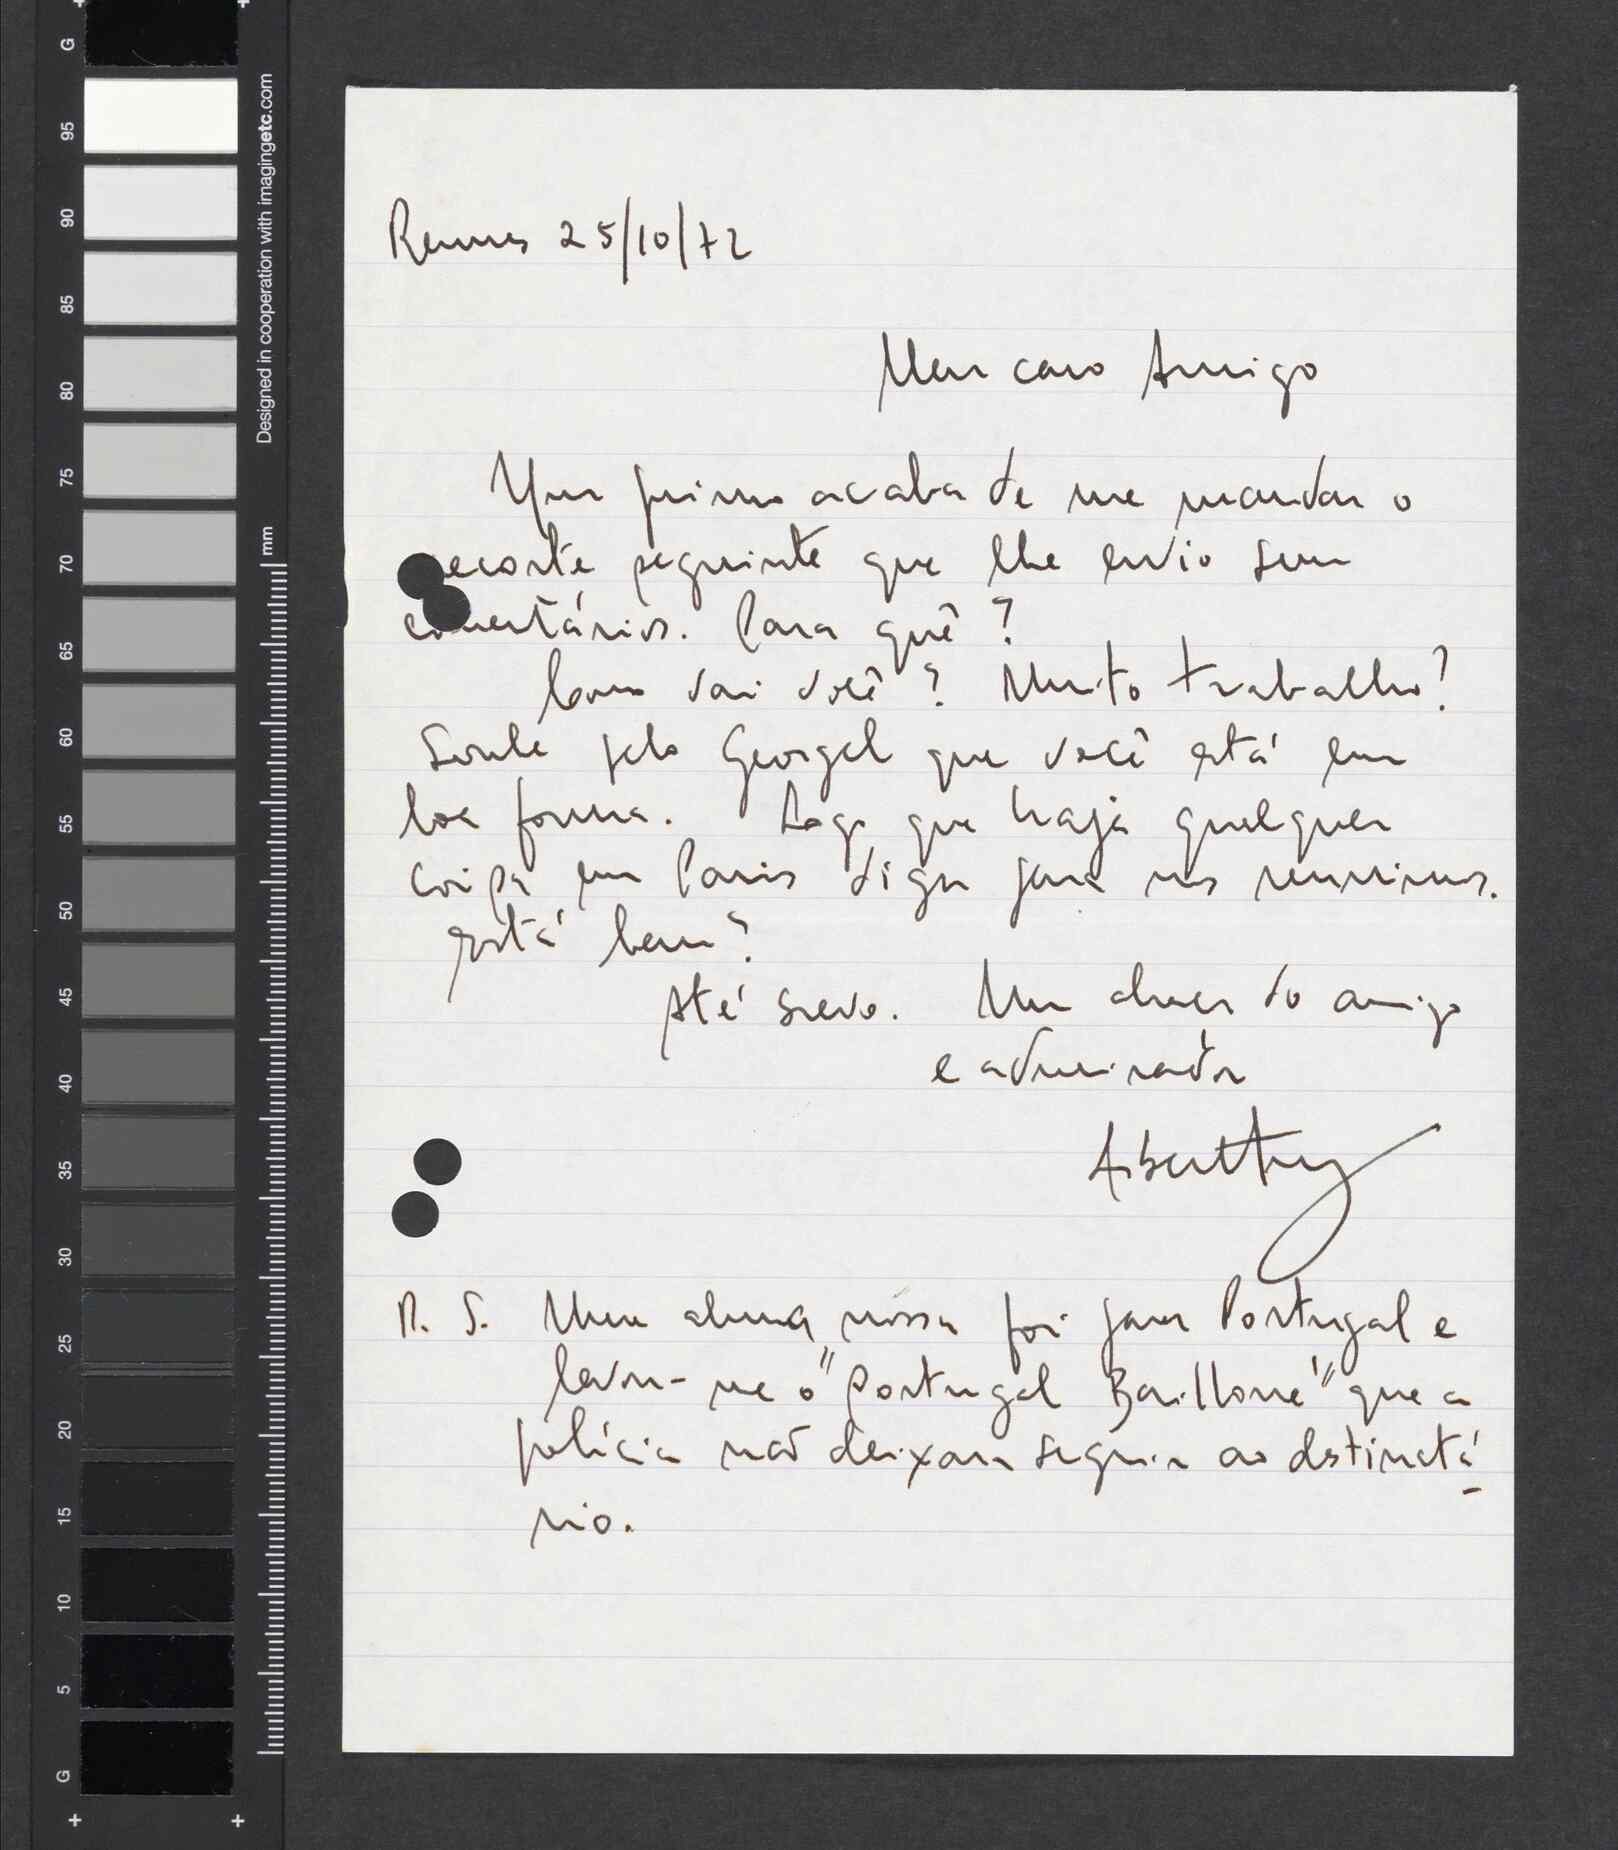 Rennes 25/10/72
Meu caro Amigo
Um primo acaba de me mandar o
recorte seguinte que lhe envio sem
comentários. Para quê?
Como vai você? Muito trabalho?
Soube pelo Georgel que você está em
boa forma. Logo que haja qualquer
coisa em Paris diga para nos reunirmos.
Está bem?
Até breve. Um abraço do amigo
e admirador
P. S. Uma aluna nossa foi para Portugal e
levou-me o "Portugal Baillonné" que a
polícia não deixara seguir ao destinatá-
rio.
G
95
90
85
80
75
70
65
60
55
50
45
40
35
30
25
20
15
10
5
G
Designed in cooperation with imagingetc.com
mm